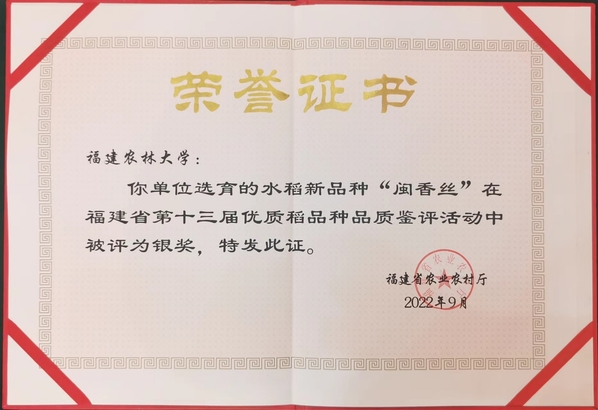 荣誉证书
福建农林大学：
你单位选育的水稻新品种“闽香丝”在
福建省第十三届优质稻品种品质鉴评活动中
被评为银奖，特发此证。
福建省农业农村厅
2022年9月